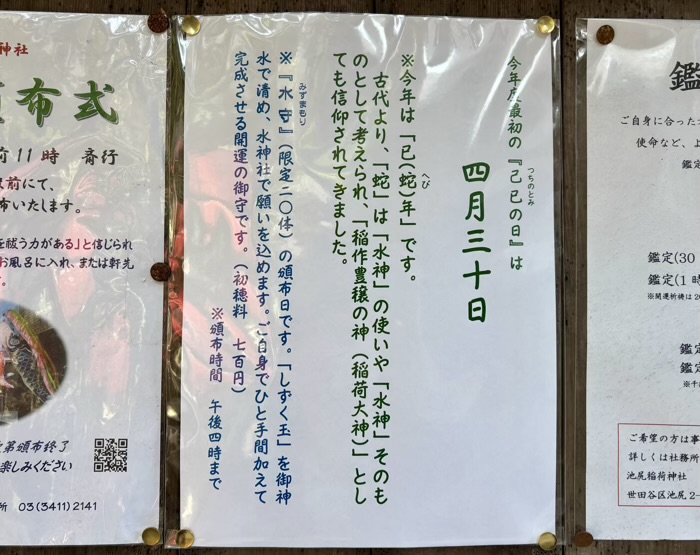 今年度最初の『己巳の日』は
つちのとみ
四月三十日
※今年は「巳(蛇)年」です。
へび
古代より、「蛇」は「水神」の使いや「水神」そのも
のとして考えられ、「稲作豊穣の神（稲荷大神）」とし
ても信仰されてきました。
※『水守』(限定二〇体)の頒布日です。「しずく玉」を御神
みずまもり
水で清め、水神社で願いを込めます。ご自身でひと手間加えて
完成させる開運の御守です。(初穂料 七百円)
※頒布時間 午後四時まで
神社
頒布式
前11時 斎行
前にて、
布いたします。
を祓う力がある」と信じられ
お風呂に入れ、または軒先
す。
第頒布終了
楽しみください
所 03(3411)2141
鑑
ご自身に合った
使命など、よ
鑑定
鑑定(30
鑑定(1時
※開運祈祷は
鑑定
鑑定
ご希望の方は事
詳しくは社務所
池尻稲荷神社
世田谷区池尻2-